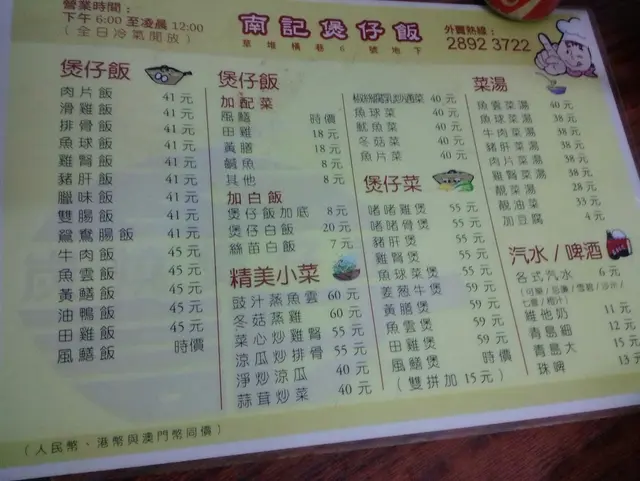 營業時間：
下午 6:00 至凌晨 12:00
(全日冷氣開放)
南記煲仔飯
草堆橫巷6號地下
外賣熱線：
2892 3722
煲仔飯
肉片飯 41元
滑雞飯 41元
排骨飯 41元
魚球飯 41元
雞腎飯 41元
豬肝飯 41元
臘味飯 41元
雙腸飯 41元
鴛鴦腸飯 41元
牛肉飯 45元
魚雲飯 45元
黃鱔飯 45元
油鴨飯 45元
田雞飯 45元
風鱔飯 時價
煲仔飯
加配菜
風鱔 時價
田雞 18元
黃膳 18元
鹹魚 8元
其他 8元
加白飯
煲仔飯加底 8元
煲仔白飯 20元
絲苗白飯 7元
精美小菜
豉汁蒸魚雲 60元
冬菇蒸雞 60元
菜心炒雞腎 55元
涼瓜炒排骨 55元
淨炒涼瓜 40元
蒜茸炒菜 40元
椒絲腐乳炒通菜 40元
魚球菜 40元
魷魚菜 40元
冬菇菜 40元
魚片菜 40元
煲仔菜
啫啫雞煲 55元
啫啫骨煲 55元
豬肝煲 55元
雞腎煲 55元
魚球菜煲 55元
姜葱牛煲 59元
黃膳煲 59元
魚雲煲 59元
田雞煲 59元
風鱔煲 時價
(雙拼加15元)
菜湯
魚雲菜湯 40元
魚球菜湯 38元
牛肉菜湯 38元
豬肝菜湯 38元
肉片菜湯 38元
雞腎菜湯 38元
靚菜湯 28元
靚油菜 33元
加豆腐 4元
汽水/啤酒
各式汽水 6元
(可樂/忌廉/雪碧/沙示/
七喜/橙汁)
維他奶 11元
青島細 12元
青島大 15元
珠啤 13元
(人民幣、港幣與澳門幣同價)